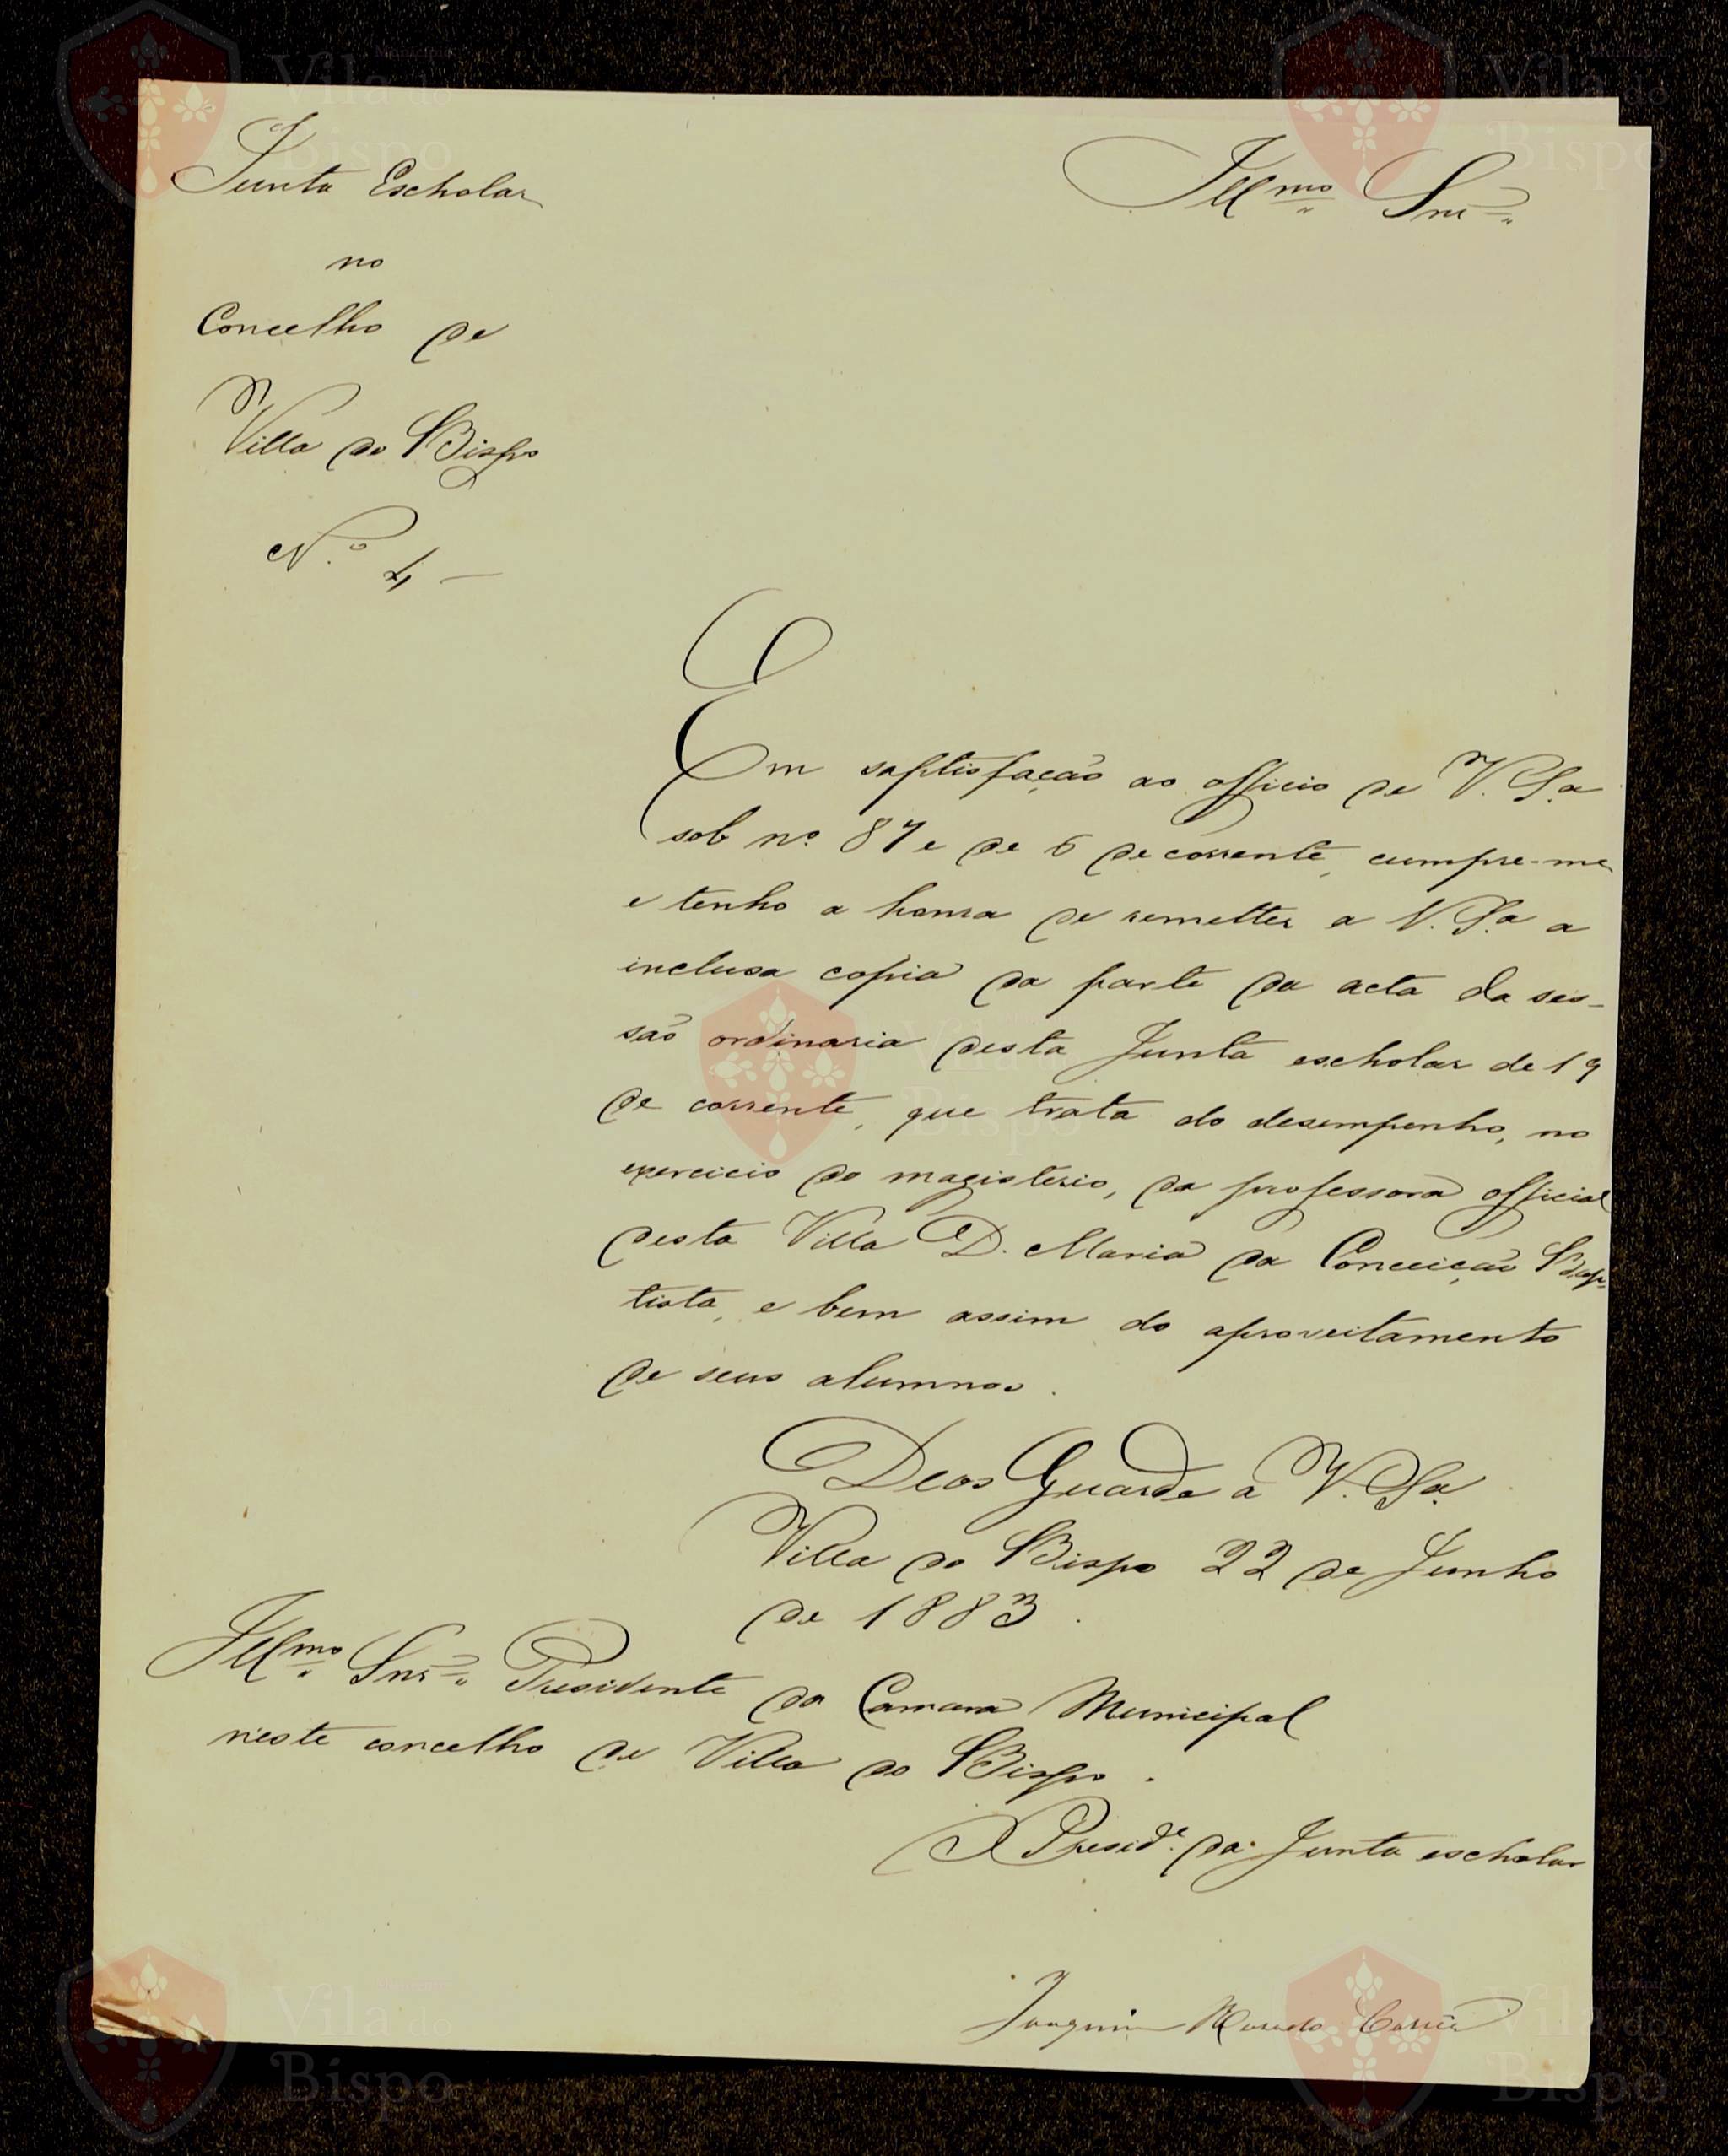 Junta Escholar
no
Concelho de
Villa do Bispo
N.º 4 -
Illmo Snr.
Em saptisfação ao officio de V. S.ª
sob nº 87 e de 6 de corrente, cumpre-me
e tenho a honra de remetter a V. S.ª a
inclusa copia da parte da acta da ses-
são ordinaria desta Junta escholar de 19
de corrente, que trata do desempenho, no
exercicio do magisterio, da professora official
desta Villa D. Maria da Conceição Bap-
tista, e bem assim do aproveitamento
de seus alumnos.
Deos Guarde a V. Sª.
Villa do Bispo 22 de Junho
de 1883.
Illmo Snr. Presidente da Camara Municipal
neste concelho de Villa do Bispo.
O Presid.e da Junta escholar
Joaquim Correia
Vila do
Bispo